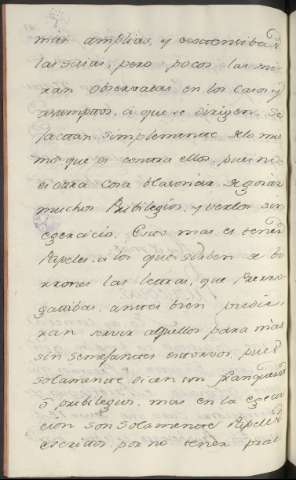 mas amplias, y
las suias, pero pocos las mi
ran observadas en los casos, y
asumptos, à que se dirigen. Se
jactan simplemente de lo mis
mo que es contra ellos, pues no
es otra cosa blasonar de gozar
muchos Pribilegios, y verlos sin
egercicio. Esto mas es tener
Papeles, à los que sirben de bo
rrones las letras, que Prerro
gatibas, antes bien pudie
ran servir aquellos para mas
sin semejantes entornos, pues
solamente dicen son franquezas
ò pribilegios, mas en la egecu
cion son solamente Papeles
escritos por no tener prac